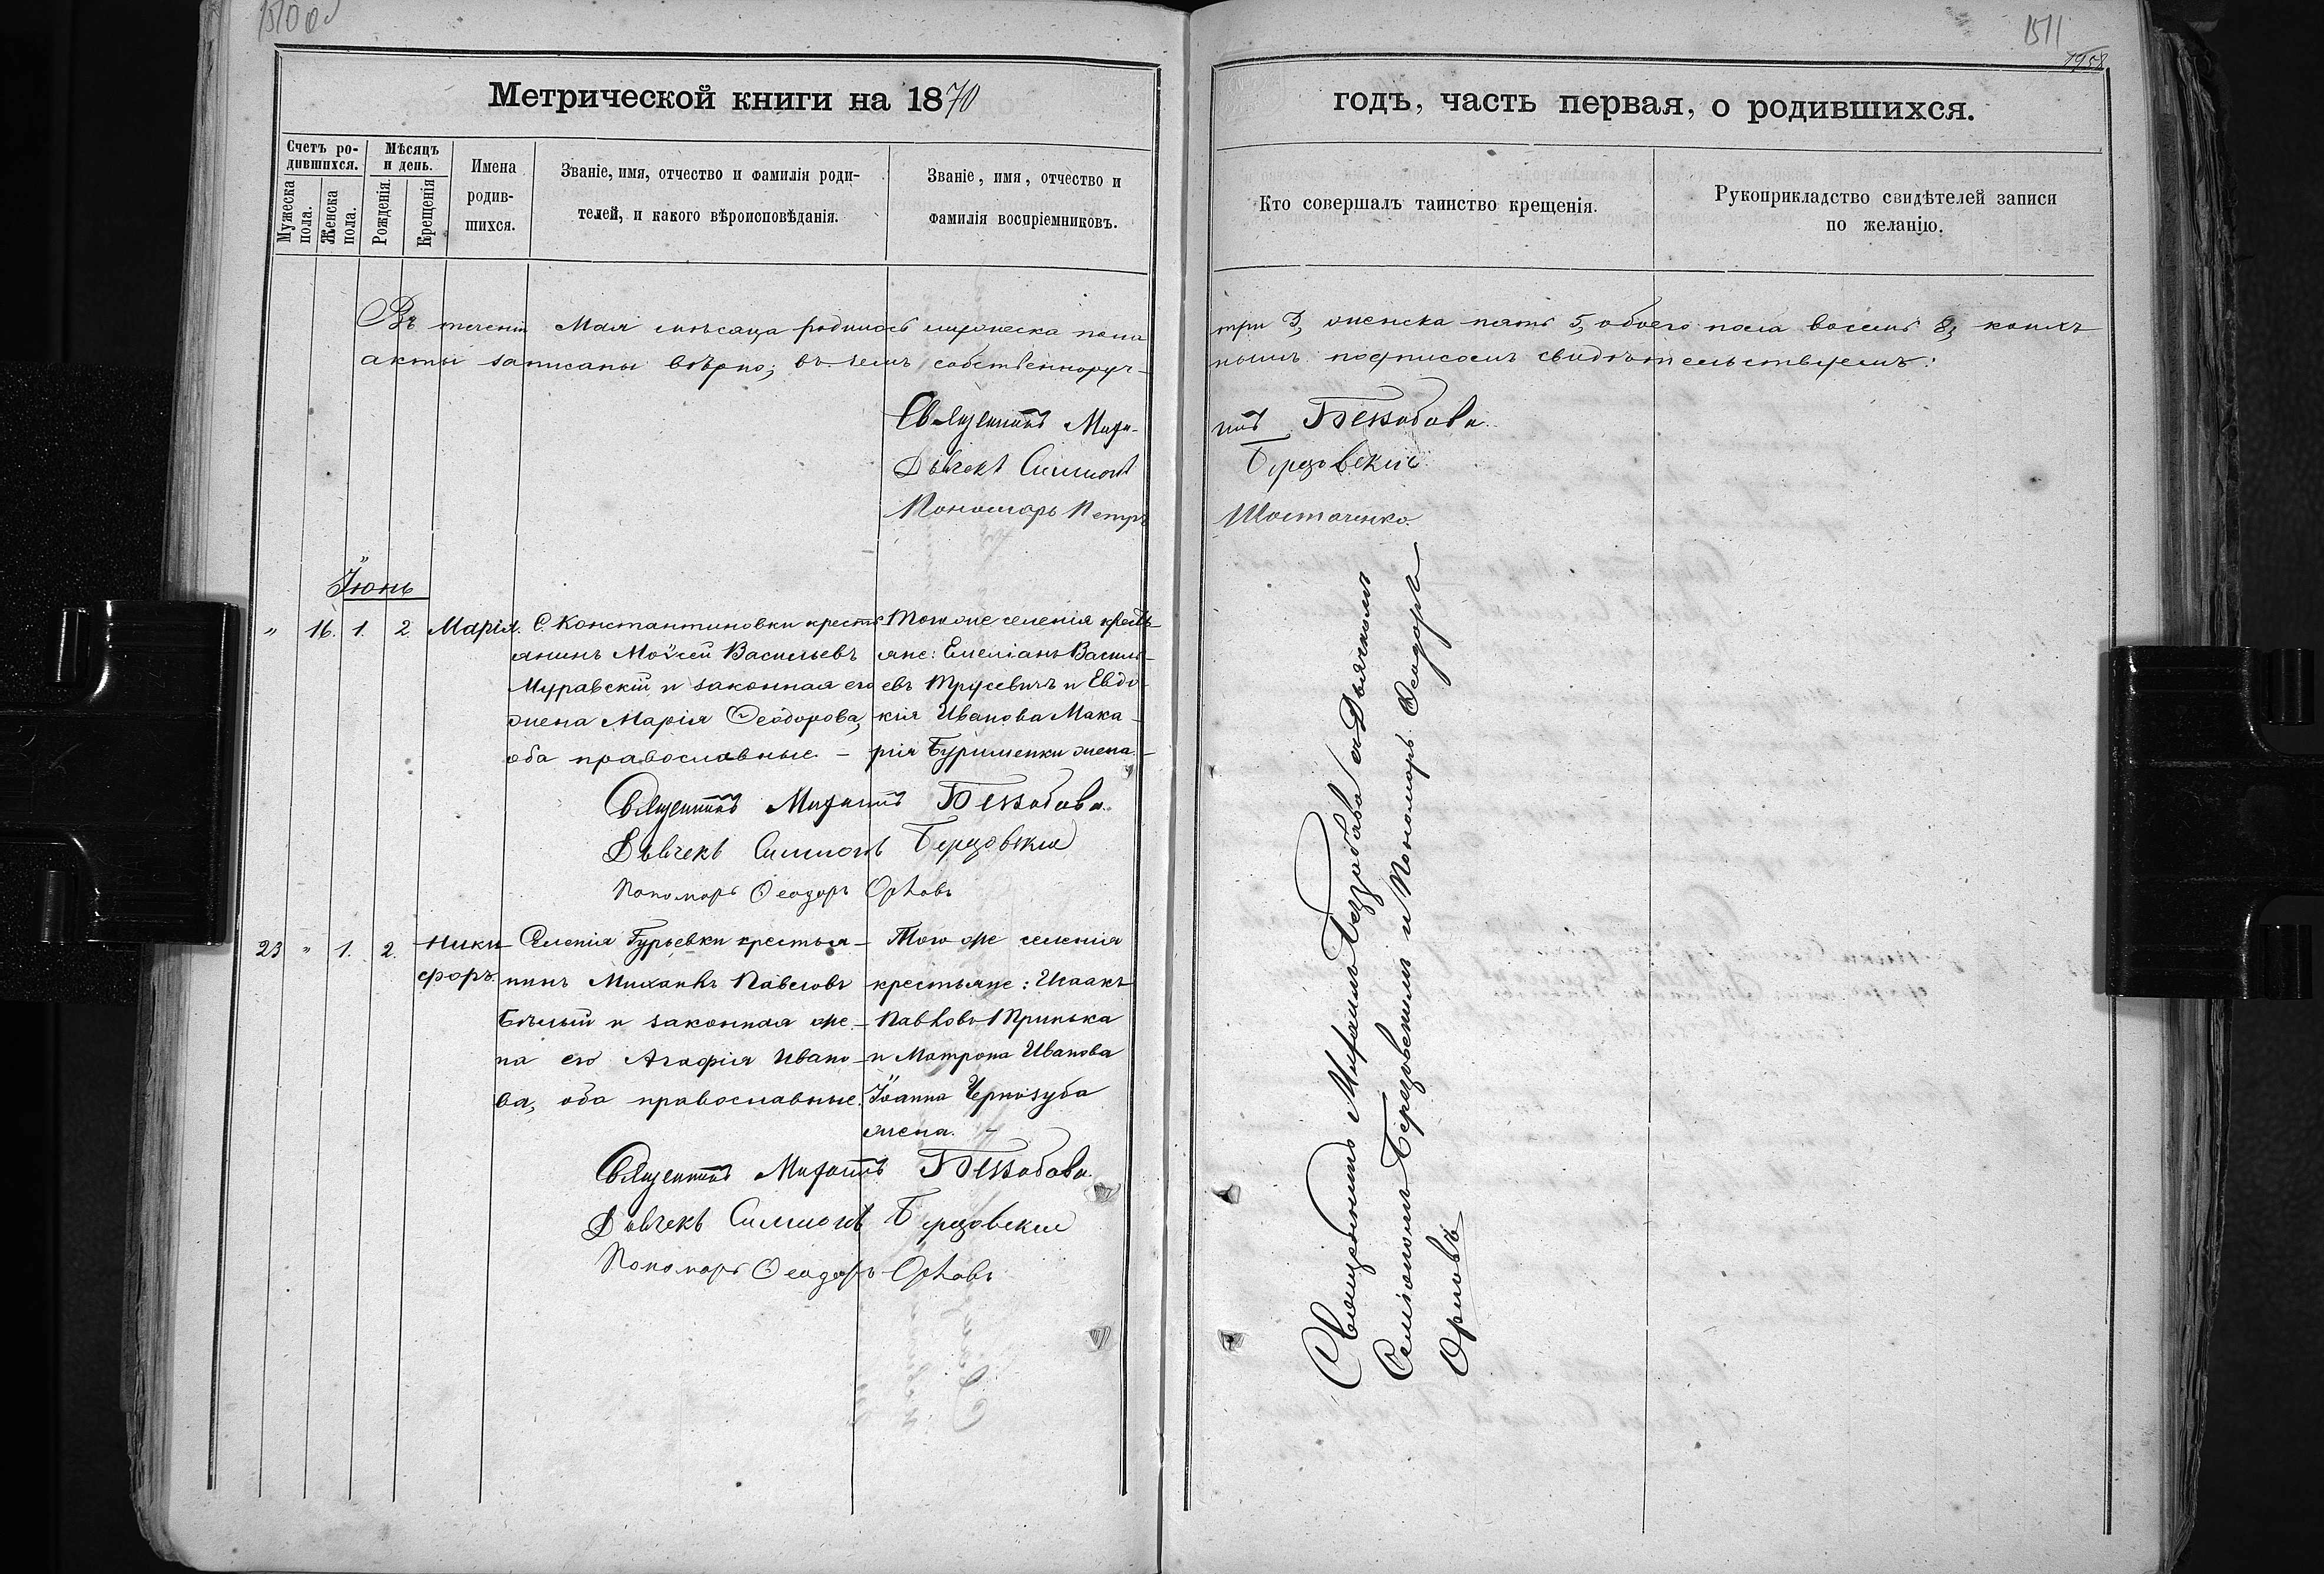 1510 об
1511
1958
Метрической книги на 1870
годъ, часть первая, о родившихся.
Счетъ ро-
дившихся.
Мужеска
пола.
Женска
пола.
Мѣсяцъ
и день.
Рожденія.
Крещенія
Имена
родив-
шихся.
Званіе, имя, отчество и фамилія роди-
телей, и какого вѣроисповѣданія.
Званіе, имя, отчество и
фамилія воспріемниковъ.
Кто совершалъ таинство крещенія.
Рукоприкладство свидѣтелей записи
по желанію.
Въ теченіи Мая мѣсяца родилось мужеска пола три 3, женска пять 5, обоего пола восемь 8, коихъ
акты записаны вѣрно; въ чемъ собственноруч- нымъ подписомъ свидѣтельствуемъ:
Священникъ Миха- илъ Беззабава
Дьячекъ Симеонъ Бердовскій
Пономарь Петръ Шостаченко.
Іюнь
" 16. 1. 2 Марія.
С. Константиновки кресть
янинъ Моѵсей Васильевъ
Муравскій и законная его
жена Марія Ѳеодорова,
оба православные. –
Тогоже селенія кресть-
яне: Емеліанъ Василь-
евъ Трусевичъ и Евдо-
кія Иванова Мака-
рія Буришенки жена. –
Священникъ Михаилъ Беззабава
Дьячекъ Симеонъ Бердовскій
Пономарь Ѳеодоръ Орловъ
23 " 1. 2. Ники-
форъ.
Селенія Гурьевки крестья-
нинъ Михаилъ Павловъ
Бѣлый и законная же-
на его Агафія Ивано-
ва, оба православные.
Того же селенія
крестьяне: Исаакъ
Павловъ Принька
и Матрона Иванова
Іоанна Чернозуба
жена. –
Священникъ Михаилъ Беззабава
Дьячекъ Симеонъ Бердовскій
Пономарь Ѳеодоръ Орловъ
Священникъ Михаилъ Беззабава съ Дьячкомъ
Симеономъ Бердовскимъ и Пономарь Ѳеодоръ
Орловъ